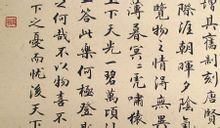 增其舊制刻唐賢
際涯朝暉夕陰氣
覽物之情得無異
冥冥虎嘯猿
上下天光一碧萬頃
答此樂何極登則
之何哉不以物喜不
下之憂而憂後天下